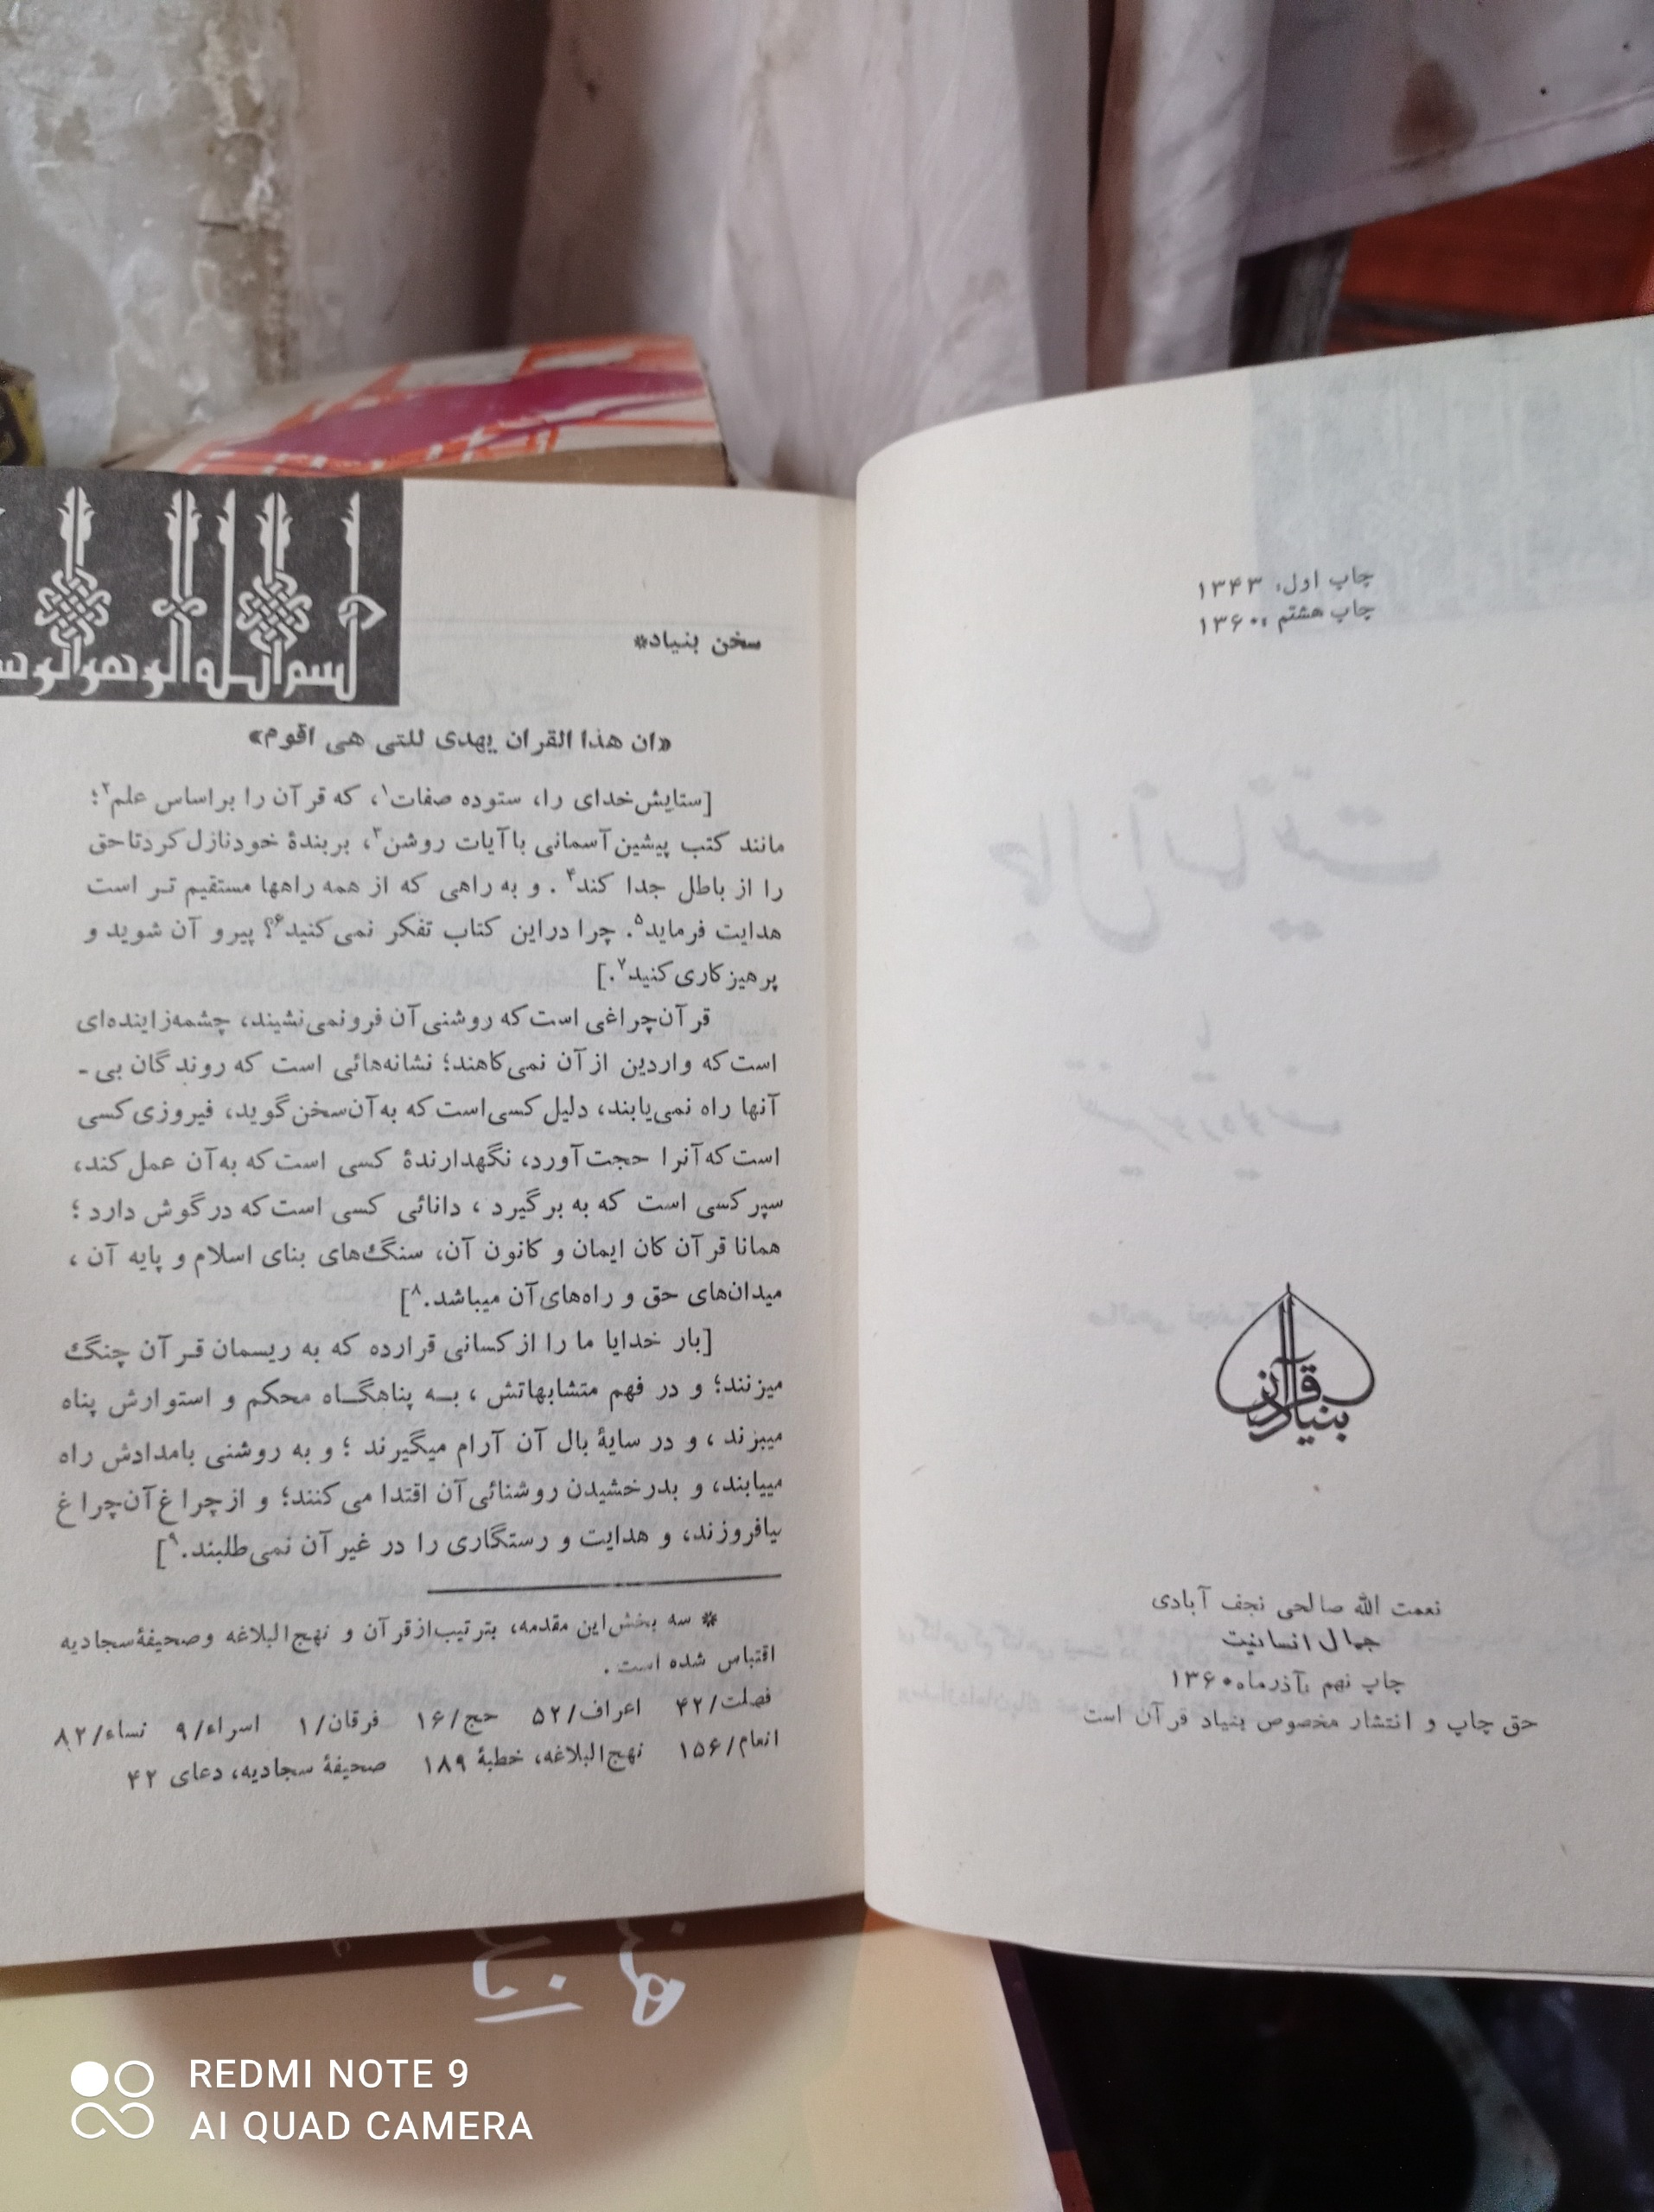 چاپ اول: ۱۳۴۳
چاپ هشتم :۱۳۶۰
بنیاد قرآن
نعمت الله صالحی نجف آبادی
جمال انسانیت
چاپ نهم :آذرماه۱۳۶۰
حق چاپ و انتشار مخصوص بنیاد قرآن است
سخن بنیاد*
«ان هذا القران یهدی للتی هی اقوم»
[ستایش‌خدای را، ستوده صفات۱، که قرآن را براساس علم۲؛
مانند کتب پیشین آسمانی با آیات روشن۳، بربندهٔ خودنازل کردتاحق
را از باطل جدا کند۴ . و به راهی که از همه راهها مستقیم تر است
هدایت فرماید۵. چرا دراین کتاب تفکر نمی‌کنید۶؟ پیرو آن شوید و
پرهیزکاری کنید۷.]
قرآن‌چراغی است که روشنی آن فرونمی‌نشیند، چشمه‌زاینده‌ای
است که واردین از آن نمی‌کاهند؛ نشانه‌هائی است که روندگان بی -
آنها راه نمی‌یابند، دلیل کسی‌است که به‌آن‌سخن‌گوید، فیروزی کسی
است که آنرا حجت‌آورد، نگهدارندهٔ کسی است که به‌آن عمل کند،
سپر کسی است که به برگیرد ، دانائی کسی است که در گوش دارد ؛
همانا قرآن کان ایمان و کانون آن، سنگ‌های بنای اسلام و پایه آن ،
میدان‌های حق و راه‌های آن میباشد.۸]
[بار خدایا ما را از کسانی قرارده که به ریسمان قرآن چنگ
میزنند؛ و در فهم متشابهاتش ، به پناهگاه محکم و استوارش پناه
میبرند ، و در سایهٔ بال آن آرام میگیرند ؛ و به روشنی بامدادش راه
مییابند، و بدرخشیدن روشنائی آن اقتدا می‌کنند؛ و از چراغ آن‌چراغ
بیافروزند، و هدایت و رستگاری را در غیر آن نمی‌طلبند.۹]
* سه بخش‌این مقدمه، بترتیب‌ازقرآن و نهج‌البلاغه وصحیفهٔ‌سجادیه
اقتباس شده است .
فصلت/۴۲ اعراف/۵۲ حج/۱۶ فرقان/۱ اسراء/۹ نساء/۸۲
انعام/۱۵۶ نهج‌البلاغه، خطبهٔ ۱۸۹ صحیفهٔ سجادیه، دعای ۴۲
REDMI NOTE 9
AI QUAD CAMERA